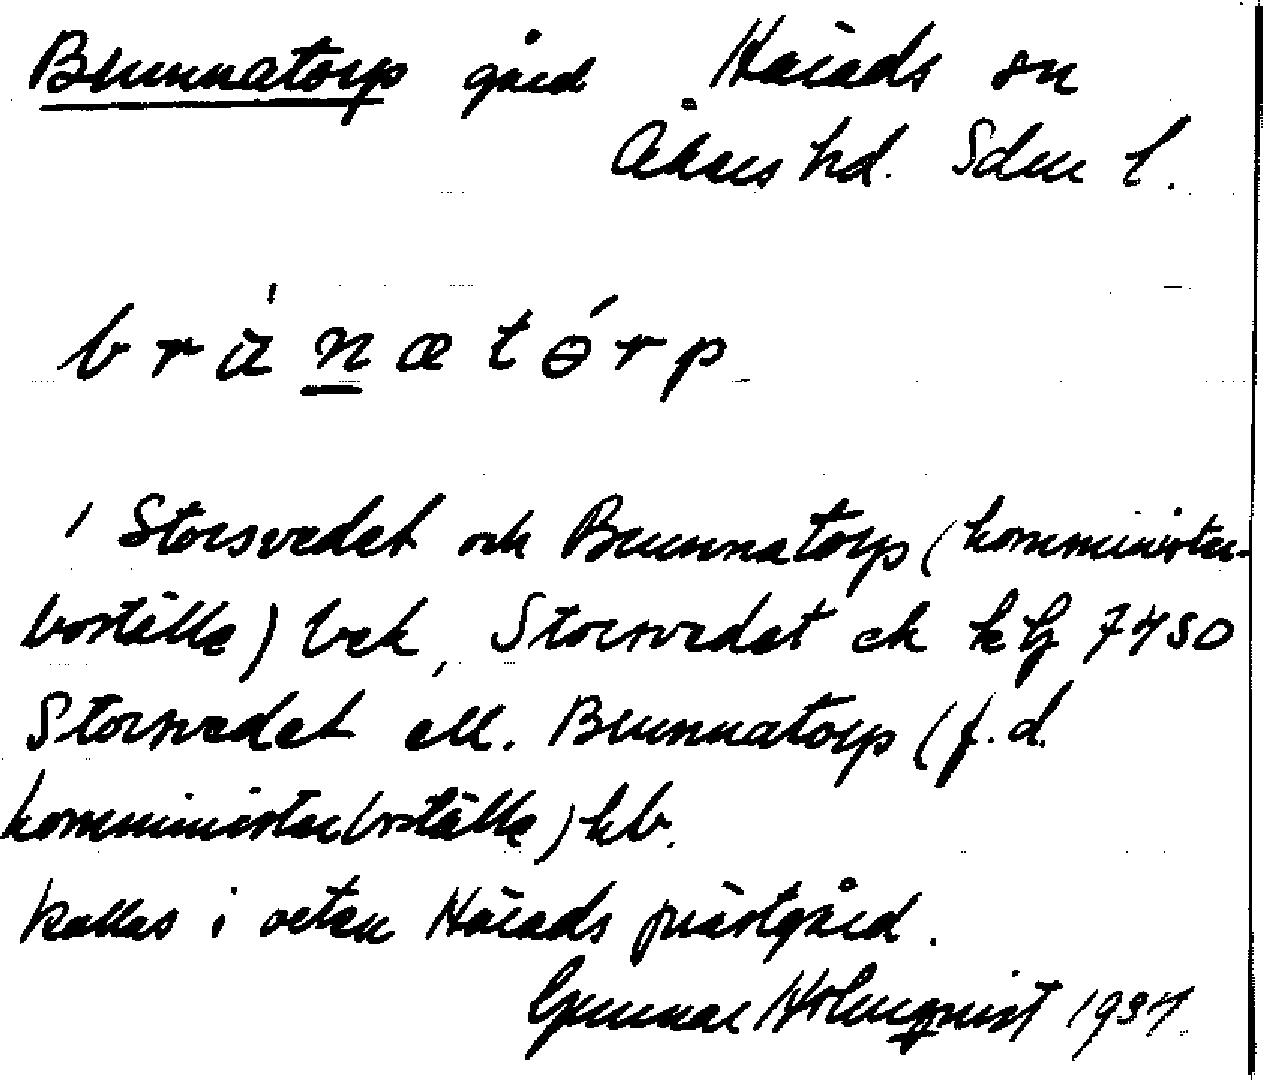 Brunnatorp gård Härads sn
Åkers hd. Sdm l.
brùnætǿrp
/ Storsvedet och Brunnatorp (komminister-
boställe) bek, Storsvedet ek kg 7450
Storsvedet ell. Brunnatorp (f.d.
komministerboställe) kb.
kallas i orten Härads prästgård.
Gunnar Holmqvist 1934